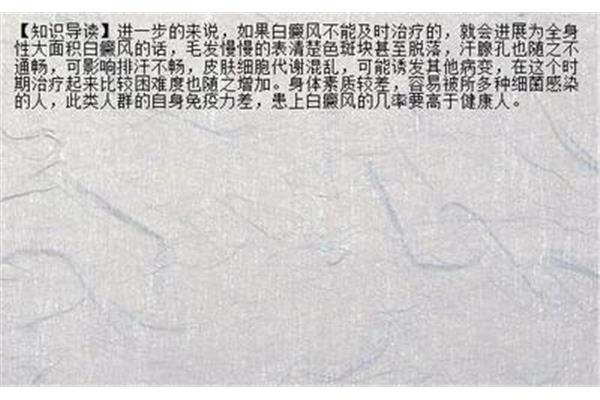 【知识导读】进一步的来说，如果白癜风不能及时治疗的，就会进展为全身
性大面积白癜风的话，毛发慢慢的表清楚色斑块甚至脱落，汗腺孔也随之不
通畅，可影响排汗不畅，皮肤细胞代谢混乱，可能诱发其他病变，在这个时
期治疗起来比较困难度也随之增加。身体素质较差，容易被所多种细菌感染
的人，此类人群的自身免疫力差，患上白癜风的几率要高于健康人。